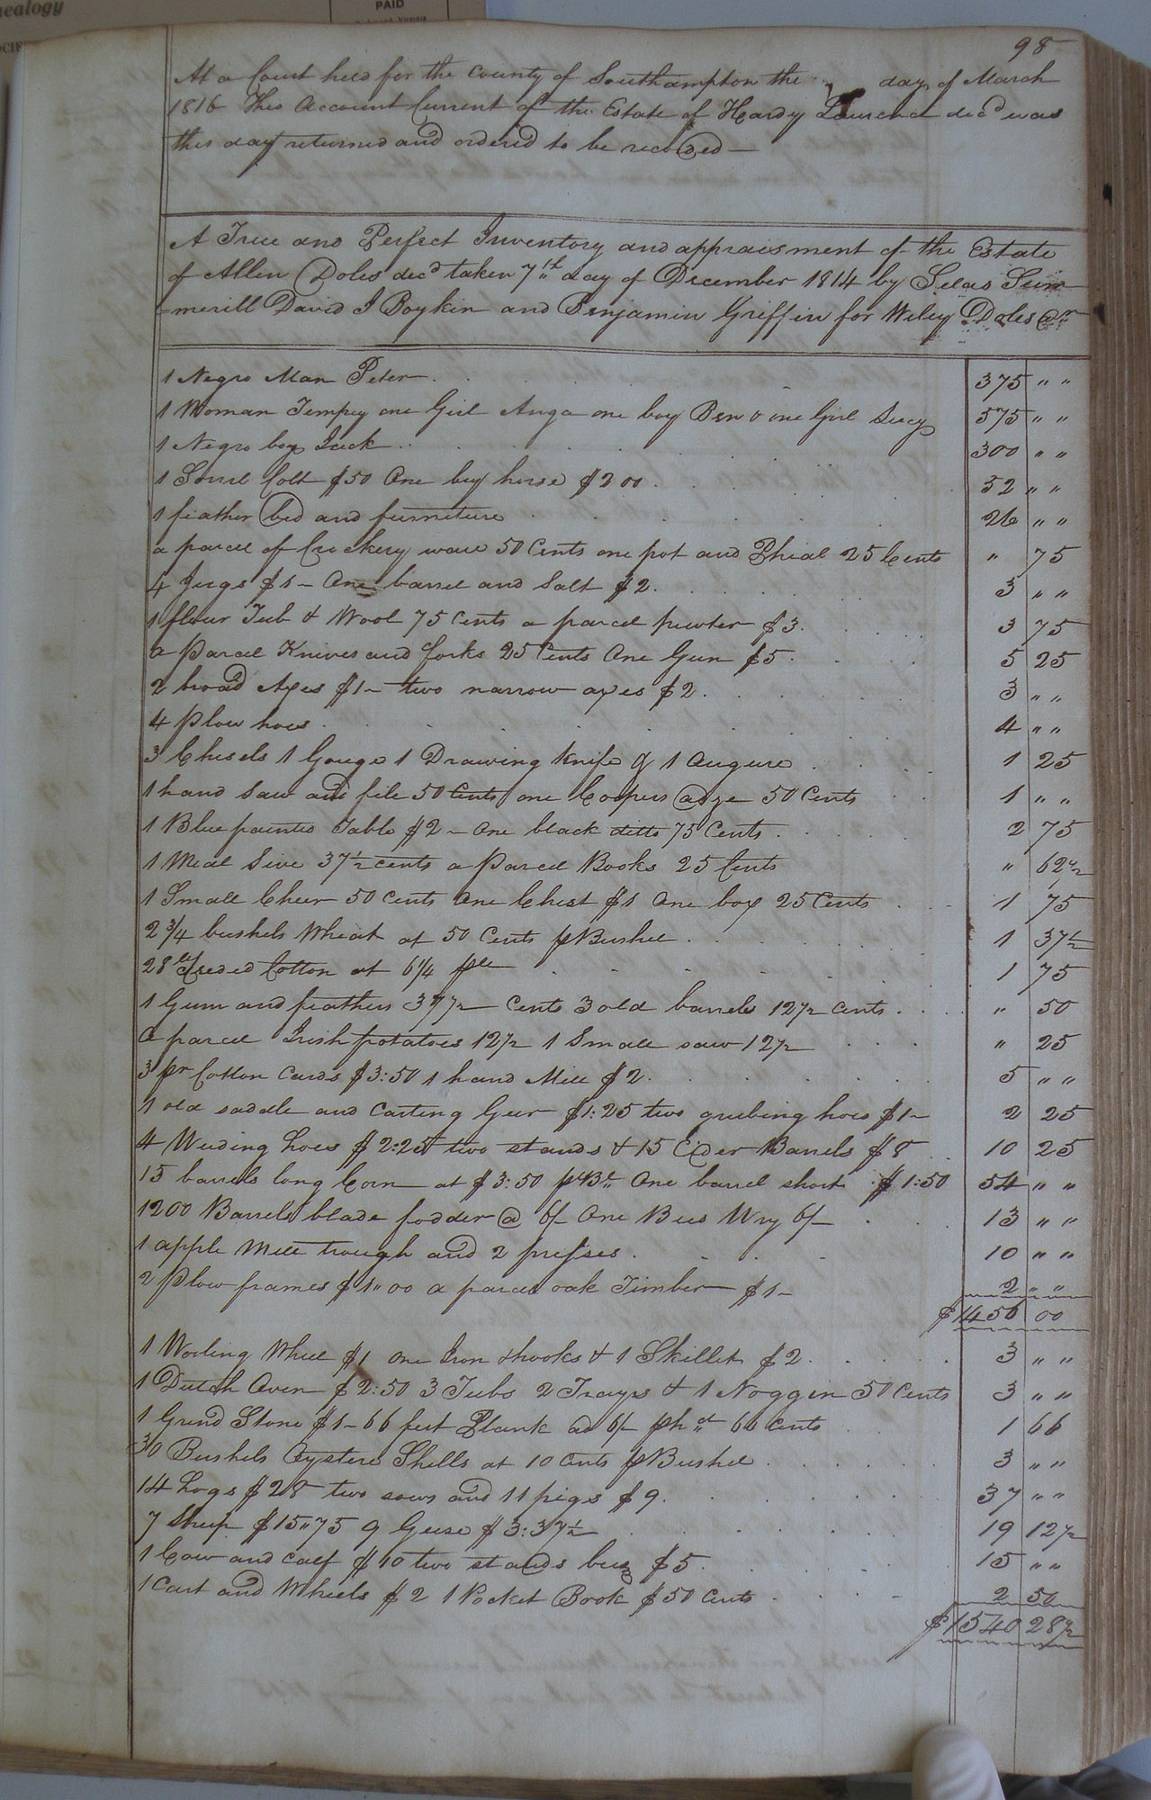 nealogy
PAID
98
At a Court held for the County of Southampton the day of March
1816 This Account Current of the Estate of Hardy Lawrence decd was
this day returned and ordered to be recorded —
A True and Perfect Inventory and appraisment of the Estate
of Allen Doles decd taken 7th day of December 1814 by Selas Sum
merill David J Boykin and Benjamin Griffin for Wiley Doles
1 Negro Man Peter 375 " "
1 Woman Tempy one Girl one boy Ben & one Girl Lucy 575 " "
1 Negro boy Jack 300 " "
1 Sorril Colt $50 One bay horse $200 32 " "
1 feather bed and furniture 26 " "
a parcel of Crockery ware 50 Cents one pot and Phial 25 Cents " 75
4 Jugs $1 – One barrel and Salt $2 3 " "
1 flour Tub & Wool 75 Cents a parcel pewter $3 3 75
a Parcel Knives and forks 25 Cents One Gun $5 5 25
2 broad Axes $1 – two narrow axes $2 3 " "
4 Plow hoes 4 " "
3 Chisels 1 Gouge 1 Drawing Knife & 1 Augure 1 25
1 hand Saw and file 50 Cents one Coopers adze 50 Cents 1 " "
1 Blue painted Table $2 – One black ditto 75 Cents 2 75
1 Meal Sive 37½ cents a Parcel Books 25 Cents " 62½
1 Small Cheer 50 Cents One Chest $1 One box 25 Cents 1 75
2 3/4 bushels Wheat at 50 Cents p Bushel 1 37½
28 lb Seeded Cotton at 6¼ p lb 1 75
1 Gum and feathers 37½ Cents 3 old barrels 12½ cents " 50
a parcel Irish potatoes 12½ 1 Small saw 12½ " 25
3 pr Cotton Cards $3:50 1 hand Mill $2 5 " "
1 old saddle and Carting Geer $1:25 two grubing hoes $1– 2 25
4 Weeding hoes $2:25 two stands & 15 Cider Barrels $8 10 25
15 barrels long Corn at $3:50 p Bl One barrel short $1:50 54 " "
1200 Barrels blade fodder @ 6/ One Bees Wry 6/– 13 " "
1 apple Mill trough and 2 presses 10 " "
2 Plow frames $1"00 a parcel oak Timber $1– 2 " "
$1456 00
1 Wooling Wheel $1 One Iron & hooks & 1 Skillet $2 3 " "
1 Dutch Oven $2:50 3 Tubs 2 Trays & 1 Noggin 50 Cents 3 " "
1 Grind Stone $1– 66 feet Plank at 6/ 66 cents 1 66
30 Bushels Oysters Shells at 10 Cents p Bushel 3 " "
14 hogs $28 two sows and 11 pigs $9 37 " "
7 Sheep $15"75 9 Geese $3:37½ 19 12½
1 Cow and calf $10 two stands bees $5 15 " "
1 Cart and Wheels $2 1 Pocket Book $50 Cents 2 50
$1540 28½